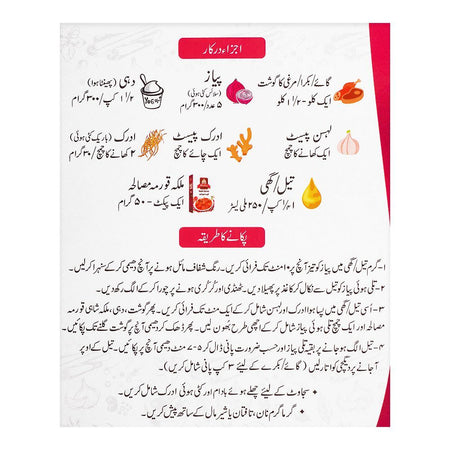 اجزاء درکار
گائے/بکرا/مرغی کا گوشت
ایک کلو - ۱/۲ ۱ کلو
پیاز
(سلائس کٹی ہوئی)
۵ عدد/۳۰۰ گرام
دہی (پھینٹا ہوا)
۱/۲ ۱ کپ/۳۰۰ گرام
لہسن پیسٹ
ایک کھانے کا چمچ
ادرک پیسٹ
ایک چائے کا چمچ
ادرک (باریک کٹی ہوئی)
۲ کھانے کا چمچ/۳۰ گرام
تیل/گھی
۱ کپ/۲۵۰ ملی لیٹر
ملکہ قورمہ مصالحہ
ایک پیکٹ - ۵۰ گرام
پکانے کا طریقہ
۱- گرم تیل/گھی میں پیاز کو تیز آنچ پر ۱۰ منٹ تک فرائی کریں۔ رنگ شفاف مائل ہونے پر آنچ دھیمی کرکے سنہرا کرلیں۔
۲- تلی ہوئی پیاز کو تیل سے نکال کر کاغذ پر پھیلا دیں۔ ٹھنڈی اور کرکری ہونے پر چورا کرکے الگ رکھ دیں۔
۳- اُسی تیل/گھی میں پسا ہوا ادرک اور لہسن شامل کرکے ایک منٹ تک فرائی کریں۔ پھر گوشت، دہی، ملکہ شاہی قورمہ
مصالحہ اور ایک چمچ تلی ہوئی پیاز شامل کرکے اچھی طرح بھون لیں۔ پھر ڈھک کر دھیمی آنچ پر گوشت گلنے تک پکائیں۔
۴- تیل الگ ہو جانے پر بقیہ تلی پیاز اور حسب ضرورت پانی ڈال کر ۵-۷ منٹ دھیمی آنچ پر پکائیں۔ تیل کے اوپر
آ جانے پر دیگچی کو اتار لیں۔ (گائے/بکرے کے لیئے ۳ کپ پانی شامل کریں)۔
• سجاوٹ کے لیئے چھلے ہوئے بادام اور کٹی ہوئی ادرک شامل کریں۔
• گرما گرم نان، تافتان یا شیر مال کے ساتھ پیش کریں۔